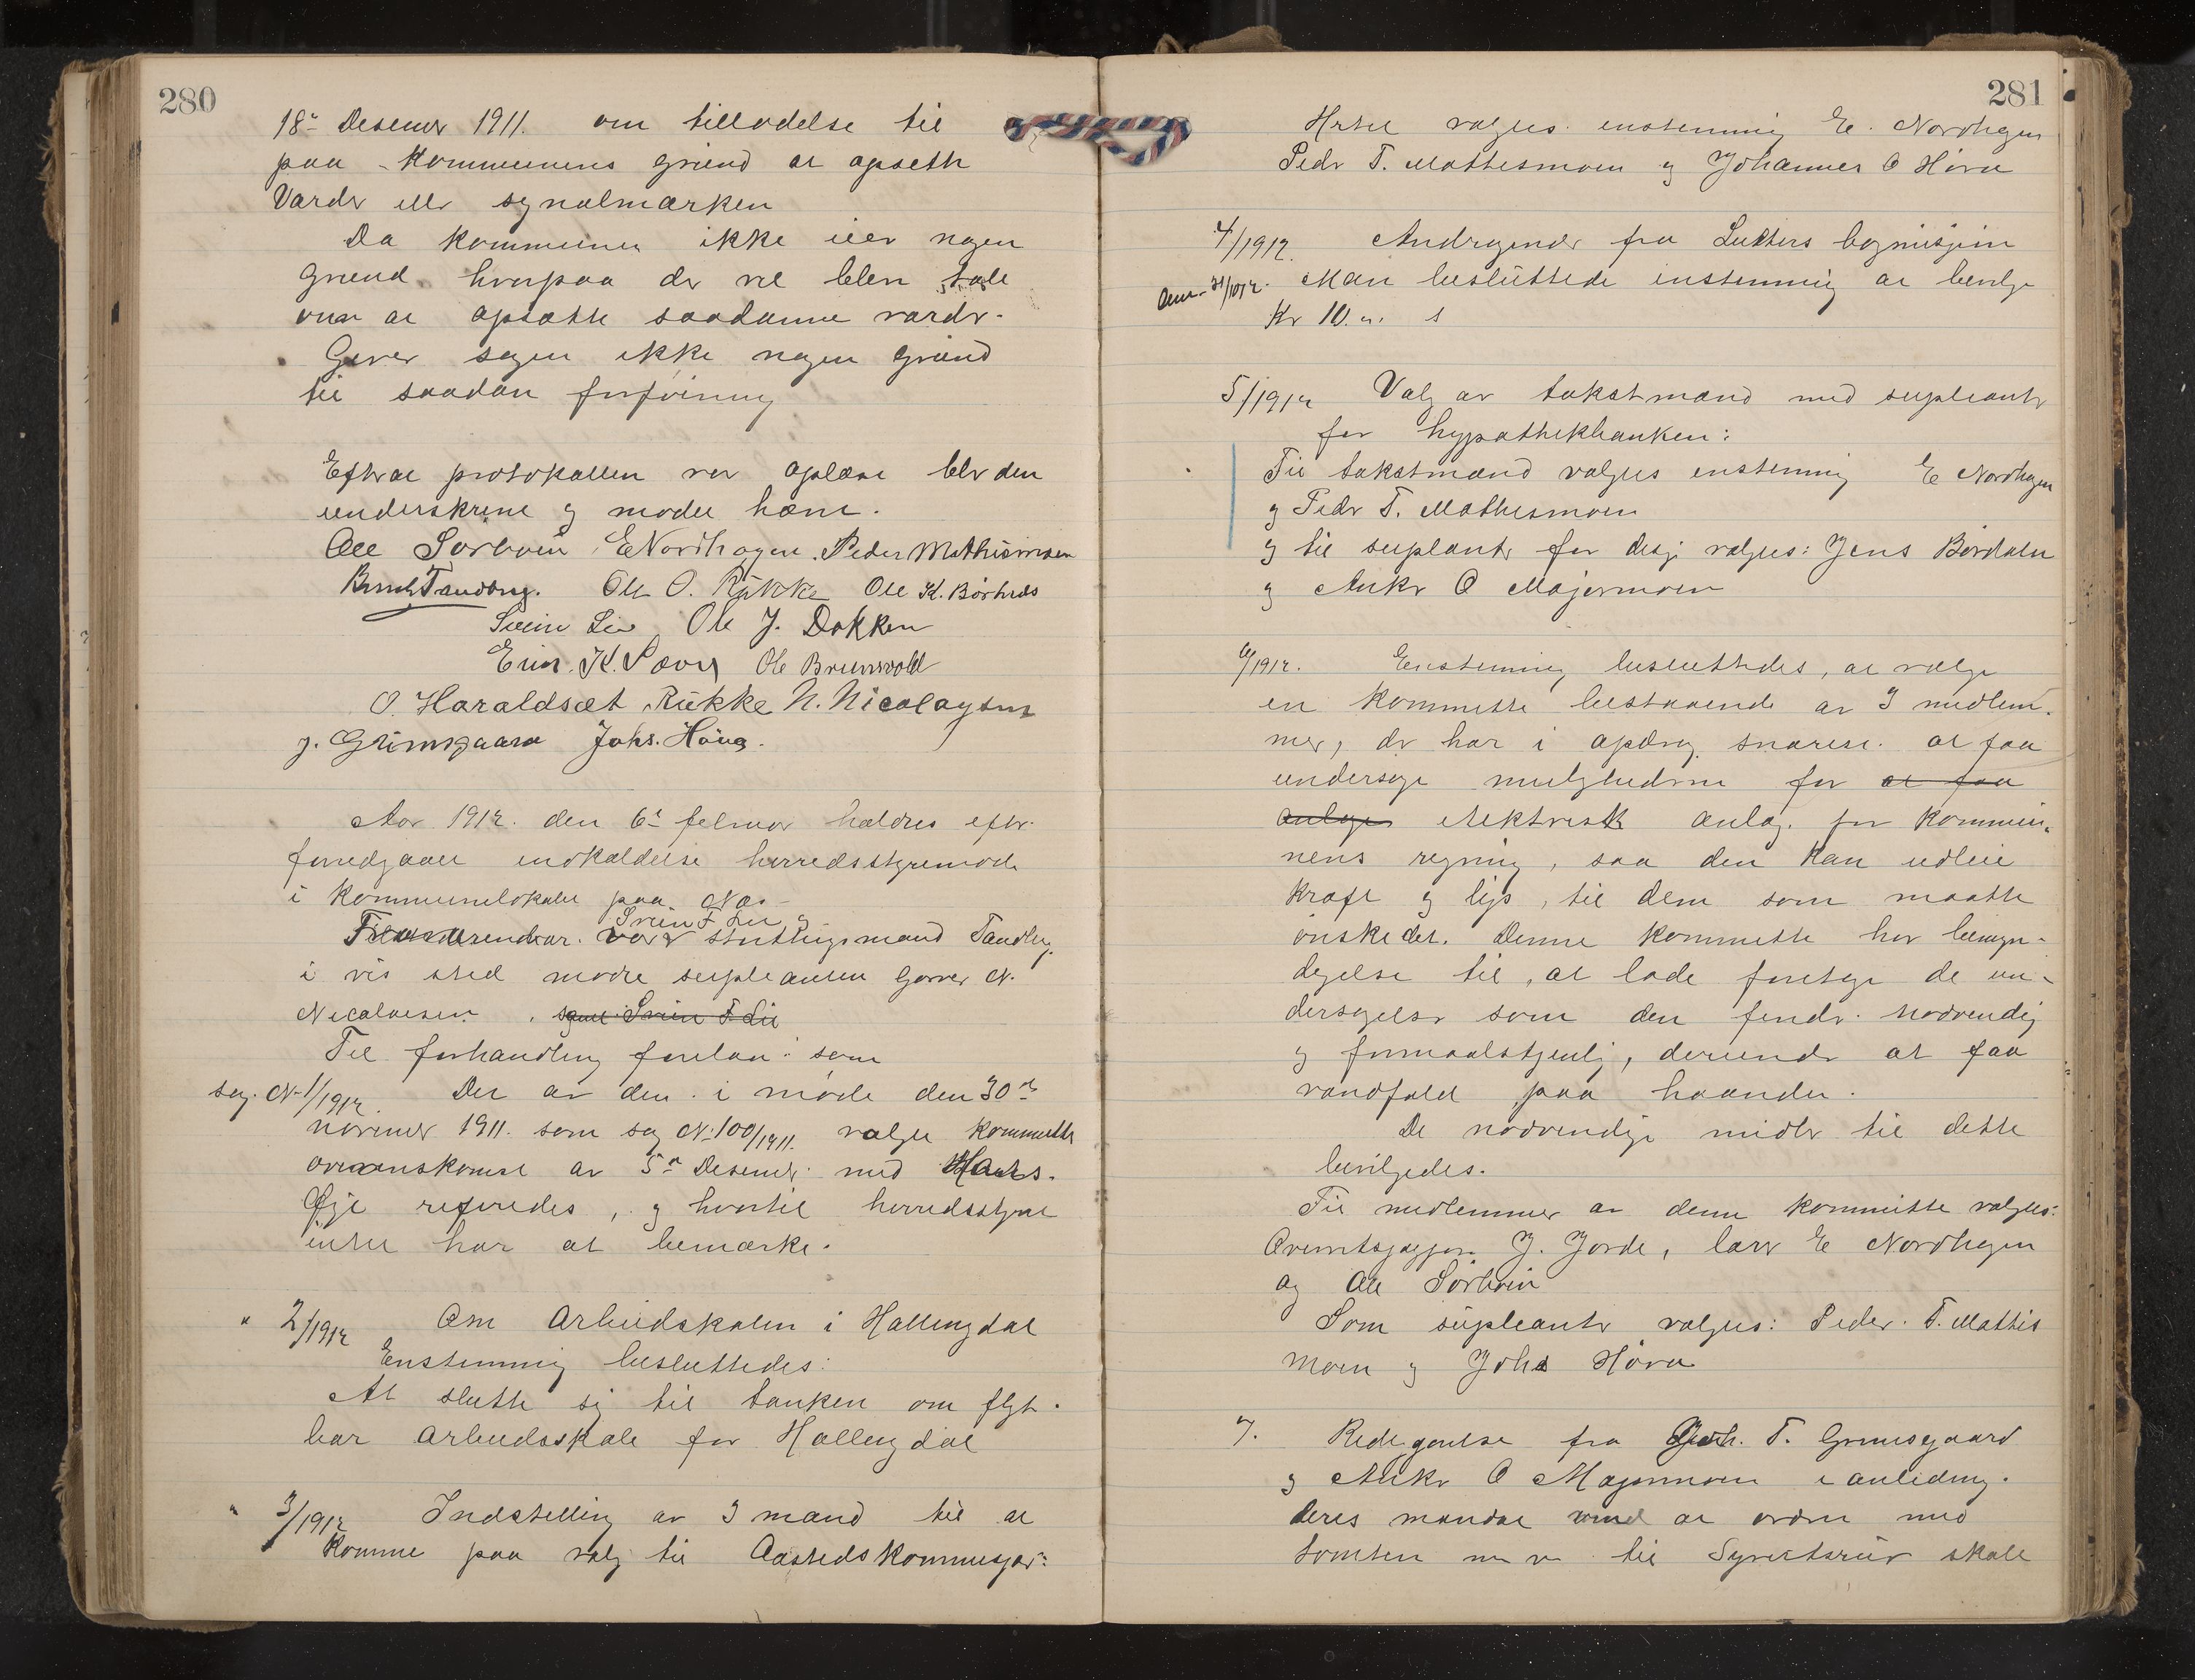 280
18de Desember 1911. om tilladelse til
paa Kommunens grund at opsætte
Varder eller signalmærken
Da kommunen ikke eier nogen
grund hvorpaa der vil blive tale
om at opsætte saadanne varder.
Giver sagen ikke nogen grund
til saadan forføining
Efter at protokollen var oplæst blev den
underskrevet og mødet hævet.
Ole Sørbøen E Nordhagen. Peder Mathismoen
Bernh. Tandberg. Ole O. Rukke Ole K. Børtnes
Svein Lie Ole J. Dokken
K. Ole Brunsvold
O. Haraldset Rukke N. Nicolaysen
J. Grimsgaard Johs. Høva.
Aar 1912. den 6te februar holdtes efter
foredgaaende indkaldelse herredsstyremøde
i kommunelokalet paa Næs
Svein F Lie og
Fraværende var lensmand Tandberg
i vis sted mødte supleanten garver N.
Nicolaisen, samt Svein F. Lie
Til forhandling forelaa: som
sag. N. 1/1912. Det av den i møde den 30te
november 1911. som sag N: 100/1911. valgte kommitte
overenskomst av 5te Desember med Hans
Øye refereredes, og hvortil herredsstyret
intet har at bemærke.
" 2/1912 Om Arbeidskolen i Hallingdal
Enstemmig besluttedes:
At slutte sig til tanken om flyt-
bar arbeidsskole for Hallingdal
" 3/1912 Indstilling av 3 mand til at
komme paa valg til Aastedskommisjær:
281
Hertil valgtes enstemmig E. Nordhagen
Peder T. Mathismoen og Johannes O Høva
4/1912. Andragende fra Luthers bogmisjon
Man besluttede enstemmig at bevilge
Kr 10.
5/1912 Valg av takstmænd med supleanter
for hypothekbanken:
Til takstmænd valgtes enstemmig E Nordhagen
og Peder T. Mathismoen
og til supleanter for disse valgtes: Jens Børdalen
og Anker O Majormoen
6/1912. Enstemmig besluttedes, at vælge
en kommitte bestaaende av 3 medlem-
mer, der har i opdrag snarest at faa
undersøge mulighederne for at faa
anlægge elektrisk anlæg for kommu-
nens regning, saa den kan udleie
kraft og lys, til dem som maatte
ønske det. Denne kommitte har bemyn-
digelse til, at lade foretage de un-
dersøgelser som den finder nødvendig
og formaalstjenlig, derunder at faa
vandfald paa haanden.
De nødvendige midler til dette
bevilgedes.
Til medlemmer av denne kommitte valgtes:
J. Jorde, E Nordhagen
og Ole Sørbøen
Som supleanter valgtes: Peder T. Mathis
moen og Johs Høva
7. Redegjørelse fra Joh. T. Grimsgaard
og Anker O Majormoen i anledning
deres mandat med at ordne med
tomten m. v. til Syvertsrud skole